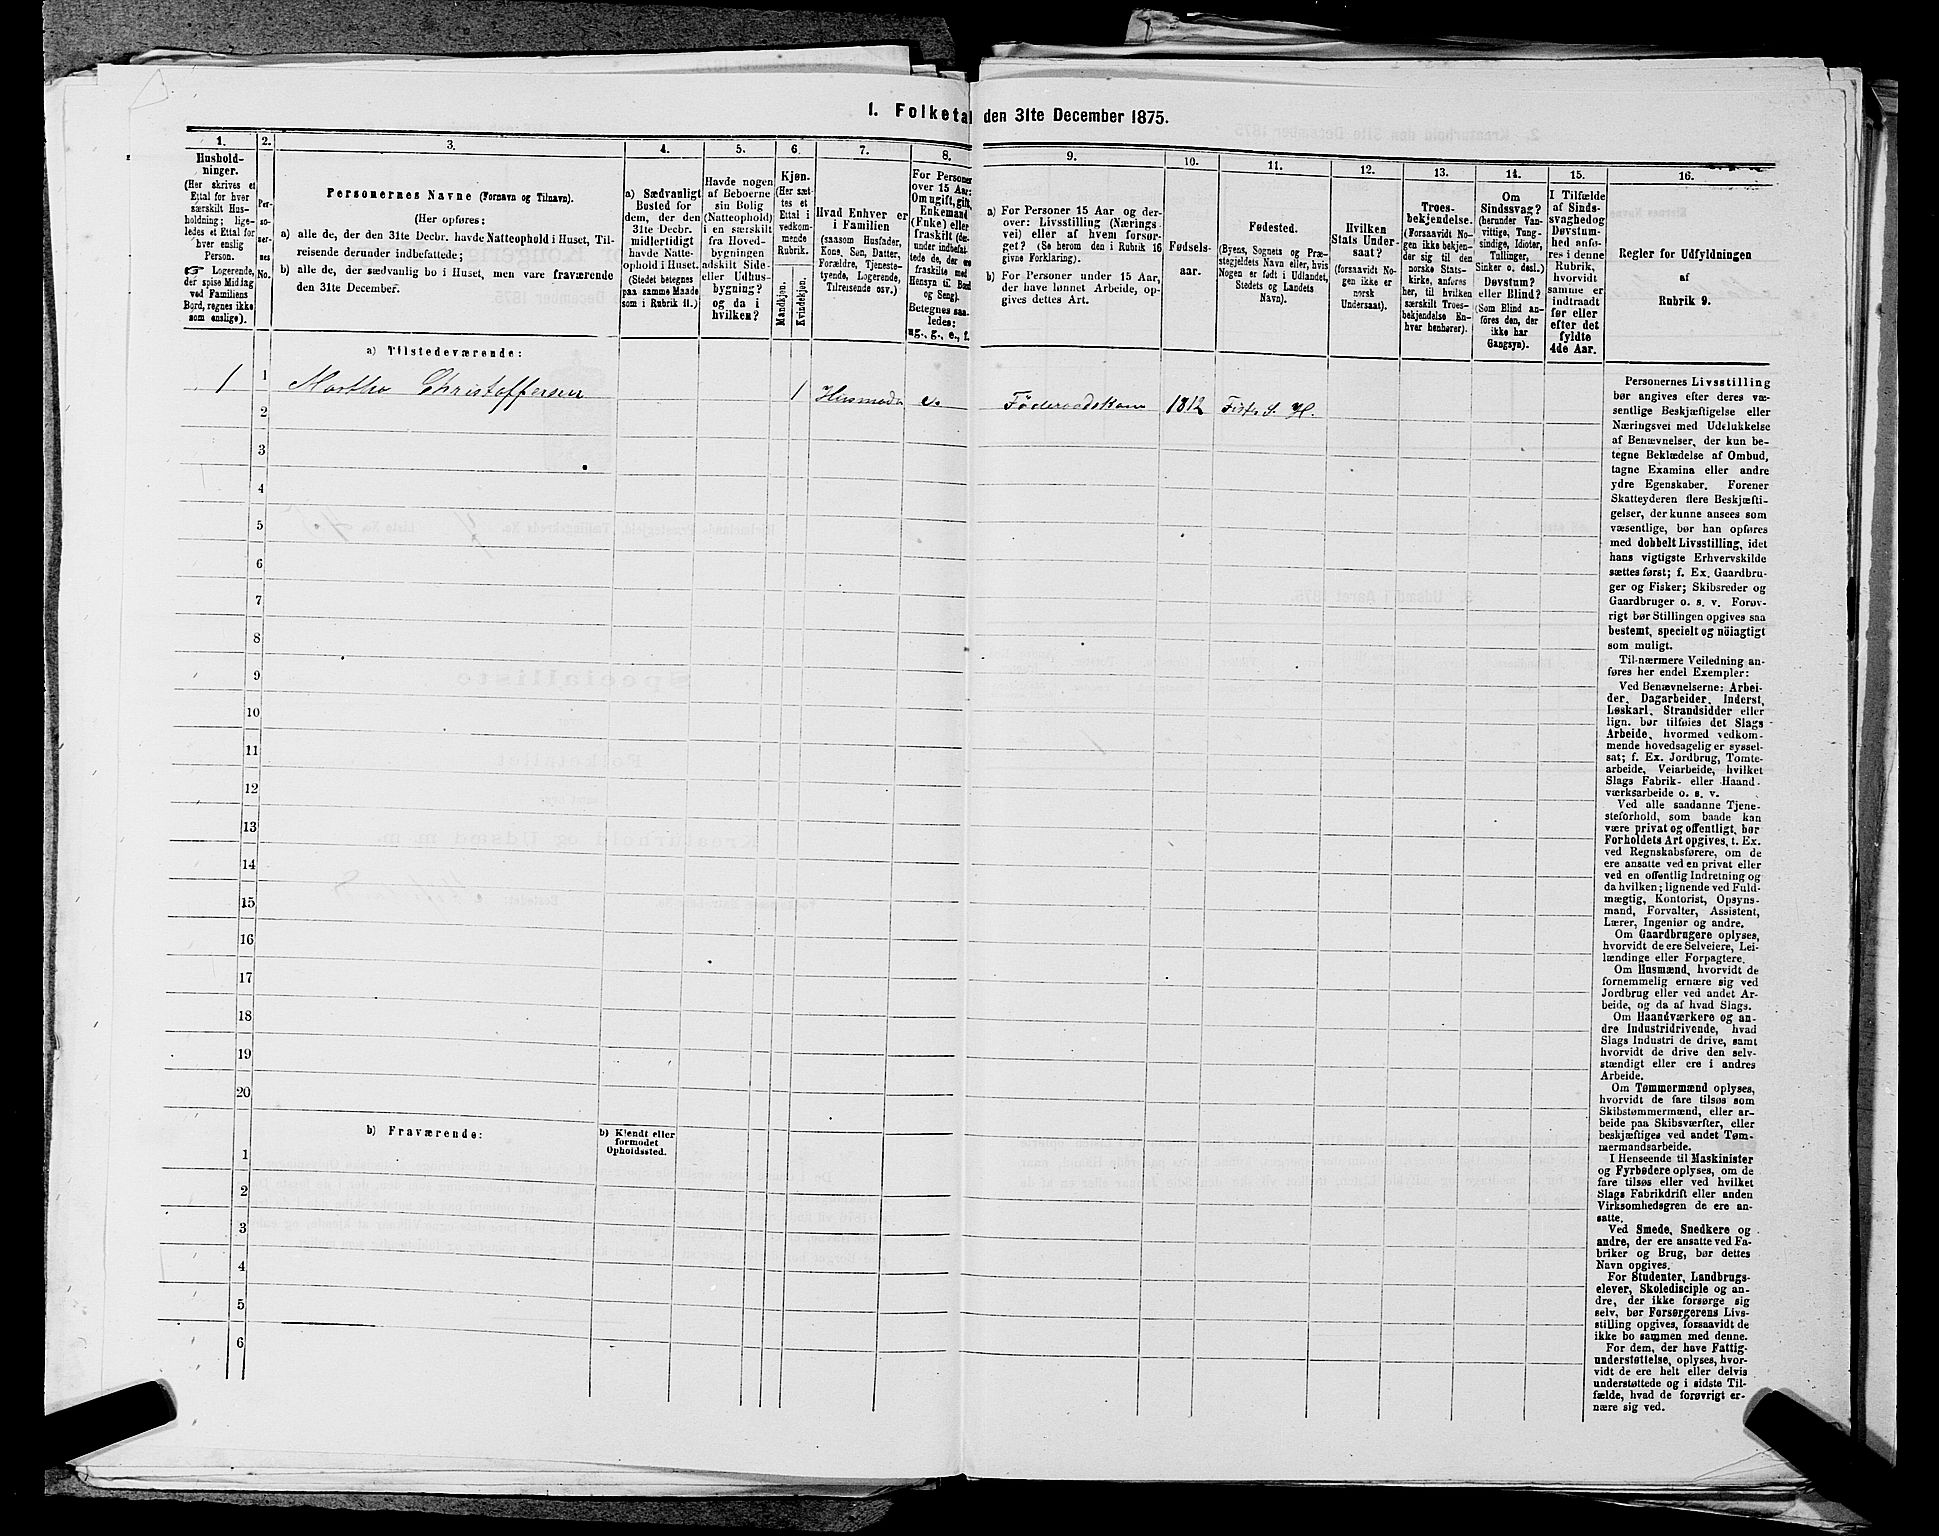 1. Folketal den 31te December 1875.
1.
Hushold-
ninger.
(Her skrives et
Ettal for hver
særskilt Hus-
holdning; lige-
ledes et Ettal for
hver enslig
Person.
☞ Logerende,
der spise Middag
ved Familiens
Bord, regnes ikke
som enslige).
2.
Per-
so-
ner-
nes
No.
3.
Personernes Navne (Fornavn og Tilnavn).
(Her opføres:
a) alle de, der den 31te Decbr. havde Natteophold i Huset, Til-
reisende derunder indbefattede;
b) alle de, der sædvanlig bo i Huset, men vare fraværende
den 31te December.
4.
a) Sædvanligt
Bosted for
dem, der den
31te Decbr.
midlertidigt
havde Natte-
ophold i Huset.
(Stedet betegnes
paa samme Maade
som i Rubrik 11.)
5.
Havde nogen
af Beboerne
sin Bolig
(Natteophold)
i en særskilt
fra Hoved-
bygningen
adskilt Side-
eller Udhus-
bygning?
og da i
hvilken?
6.
Kjøn.
(Her sæt-
tes et
Ettal i
vedkom-
mende
Rubrik.
Mandkjøn.
Kvindekjøn.
7.
Hvad Enhver er
i Familien
(saasom Husfader,
Kone, Søn, Datter,
Forældre, Tjeneste-
tyende, Logerende,
Tilreisende osv.)
8.
For Personer
over 15 Aar:
Om ugift, gift,
Enkemand
(Enke) eller
fraskilt (de-
under indbefat-
tede de, der ere
fraskilte med
Hensyn til Bord
og Seng).
Betegnes saa-
ledes:
ug., g., e., f.
9.
a) For Personer 15 Aar og der-
over: Livsstilling (Nærings-
vei) eller af hvem forsør-
get? (Se herom den i Rubrik 16
givne Forklaring).
b) For Personer under 15 Aar,
der have lønnet Arbeide, op-
gives dettes Art.
10.
Fødsels-
aar.
11.
Fødested.
(Byens, Sognets og Præ-
stegjeldets Navn eller, hvis
Nogen er født i Udlandet,
Stedets og Landets
Navn).
12.
Hvilken
Stats Under-
saat?
(forsaavidt No-
gen ikke er
norsk
Undersaat).
13.
Troes-
bekjendelse.
(Forsaavidt No-
gen ikke bekjen-
der sig til den
norske Stats-
kirke, anføres
her, til hvilken
særskilt Troes-
bekjendelse En-
hver henhører).
14.
Om
Sindssvag?
(herunder Van-
vittige, Tung-
sindige, Idioter,
Tullinger,
Sinker o. desl.)
Døvstum?
eller Blind?
(Som Blind an-
føres den, der
ikke har
Gangsyn).
15.
I Tilfælde
af Sinds-
svaghed og
Døvstum-
hed anfø-
res i denne
Rubrik,
hvorvidt
samme er
indtraadt
før eller
efter det
fyldte
4de Aar.
16.
Regler for Udfyldningen
af
Rubrik 9.
a) Tilstedeværende:
1 1 Marthe Christoffersen 1 Husmoder e. Føderaadskone 1812 S. H.
2
3
4
5
6
7
8
9
10
11
12
13
14
15
16
17
18
19
20
b) Fraværende:
b) Kjendt eller
formodet
Opholdssted.
1
2
3
4
5
6
Personernes Livsstilling
bør angives efter deres væ-
sentlige Beskjæftigelse eller
Næringsvei med Udelukkelse
af Benævnelser, der kun be-
tegne Beklædelse af Ombud,
tagne Examina eller andre
ydre Egenskaber. Forener
Skatteyderen flere Beskjæfti-
gelser, der kunne ansees som
væsentlige, bør han opføres
med dobbelt Livsstilling, idet
hans vigtigste Erhvervskilde
sættes først; f. Ex. Gaardbru-
ger og Fisker; Skibsreder og
Gaardbruger o. s. v. Forøv-
rigt bør Stillingen opgives saa
bestemt, specielt og nøiagtigt
som muligt.
Til nærmere Veiledning an-
føres her endel Exempler:
Ved Benævnelserne: Arbei-
der, Dagarbeider, Inderst,
Løskarl, Strandsidder eller
lign. bør tilføies det Slags
Arbeide, hvormed vedkom-
mende hovedsagelig er syssel-
sat; f. Ex. Jordbrug, Tomte-
arbeide, Veiarbeide, hvilket
Slags Fabrik- eller Haand-
værksarbeide o. s. v.
Ved alle saadanne Tjene-
steforhold, som baade kan
være privat og offentligt, bør
Forholdets Art opgives, t. Ex.
ved Regnskabsførere, om de
ere ansatte ved en privat eller
ved en offentlig Indretning og
da hvilken; lignende ved Fuld-
mægtig, Kontorist, Opsyns-
mand, Forvalter, Assistent,
Lærer, Ingeniør og andre.
Om Gaardbrugere oplyses,
hvorvidt de ere Selveiere, Lei-
lændinge eller Forpagtere.
Om Husmænd, hvorvidt de
fornemmelig ernære sig ved
Jordbrug eller ved andet Ar-
beide, og da af hvad Slags.
Om Haandværkere og an-
dre Industridrivende, hvad
Slags Industri de drive, samt
hvorvidt de drive den selv-
stændigt eller ere i andres
Arbeide.
Om Tømmermænd oplyses,
hvorvidt de fare tilsøs som
Skibstømmermænd, eller ar-
beide paa Skibsværfter, eller
beskjæftiges ved andet Tøm-
mermandsarbeide.
I Henseende til Maskinister
og Fyrbødere oplyses, om de
fare tilsøs eller ved hvilket
Slags Fabrikdrift eller anden
Virksomhedsgren de ere an-
satte.
Ved Smede, Snedkere og
andre, der ere ansatte ved Fa-
briker og Brug, bør dettes
Navn opgives.
For Studenter, Landbrugs-
elever, Skoledisciple og an-
dre, der ikke forsørge sig
selv, bør Forsørgerens Livs-
stilling opgives, forsaavidt de
ikke bo sammen med denne.
For dem, der have Fattig-
understøttelse, oplyses, hvor-
vidt de ere helt eller delvis
understøttede og i sidste Til-
fælde, hvad de forøvrigt er-
nære sig ved.